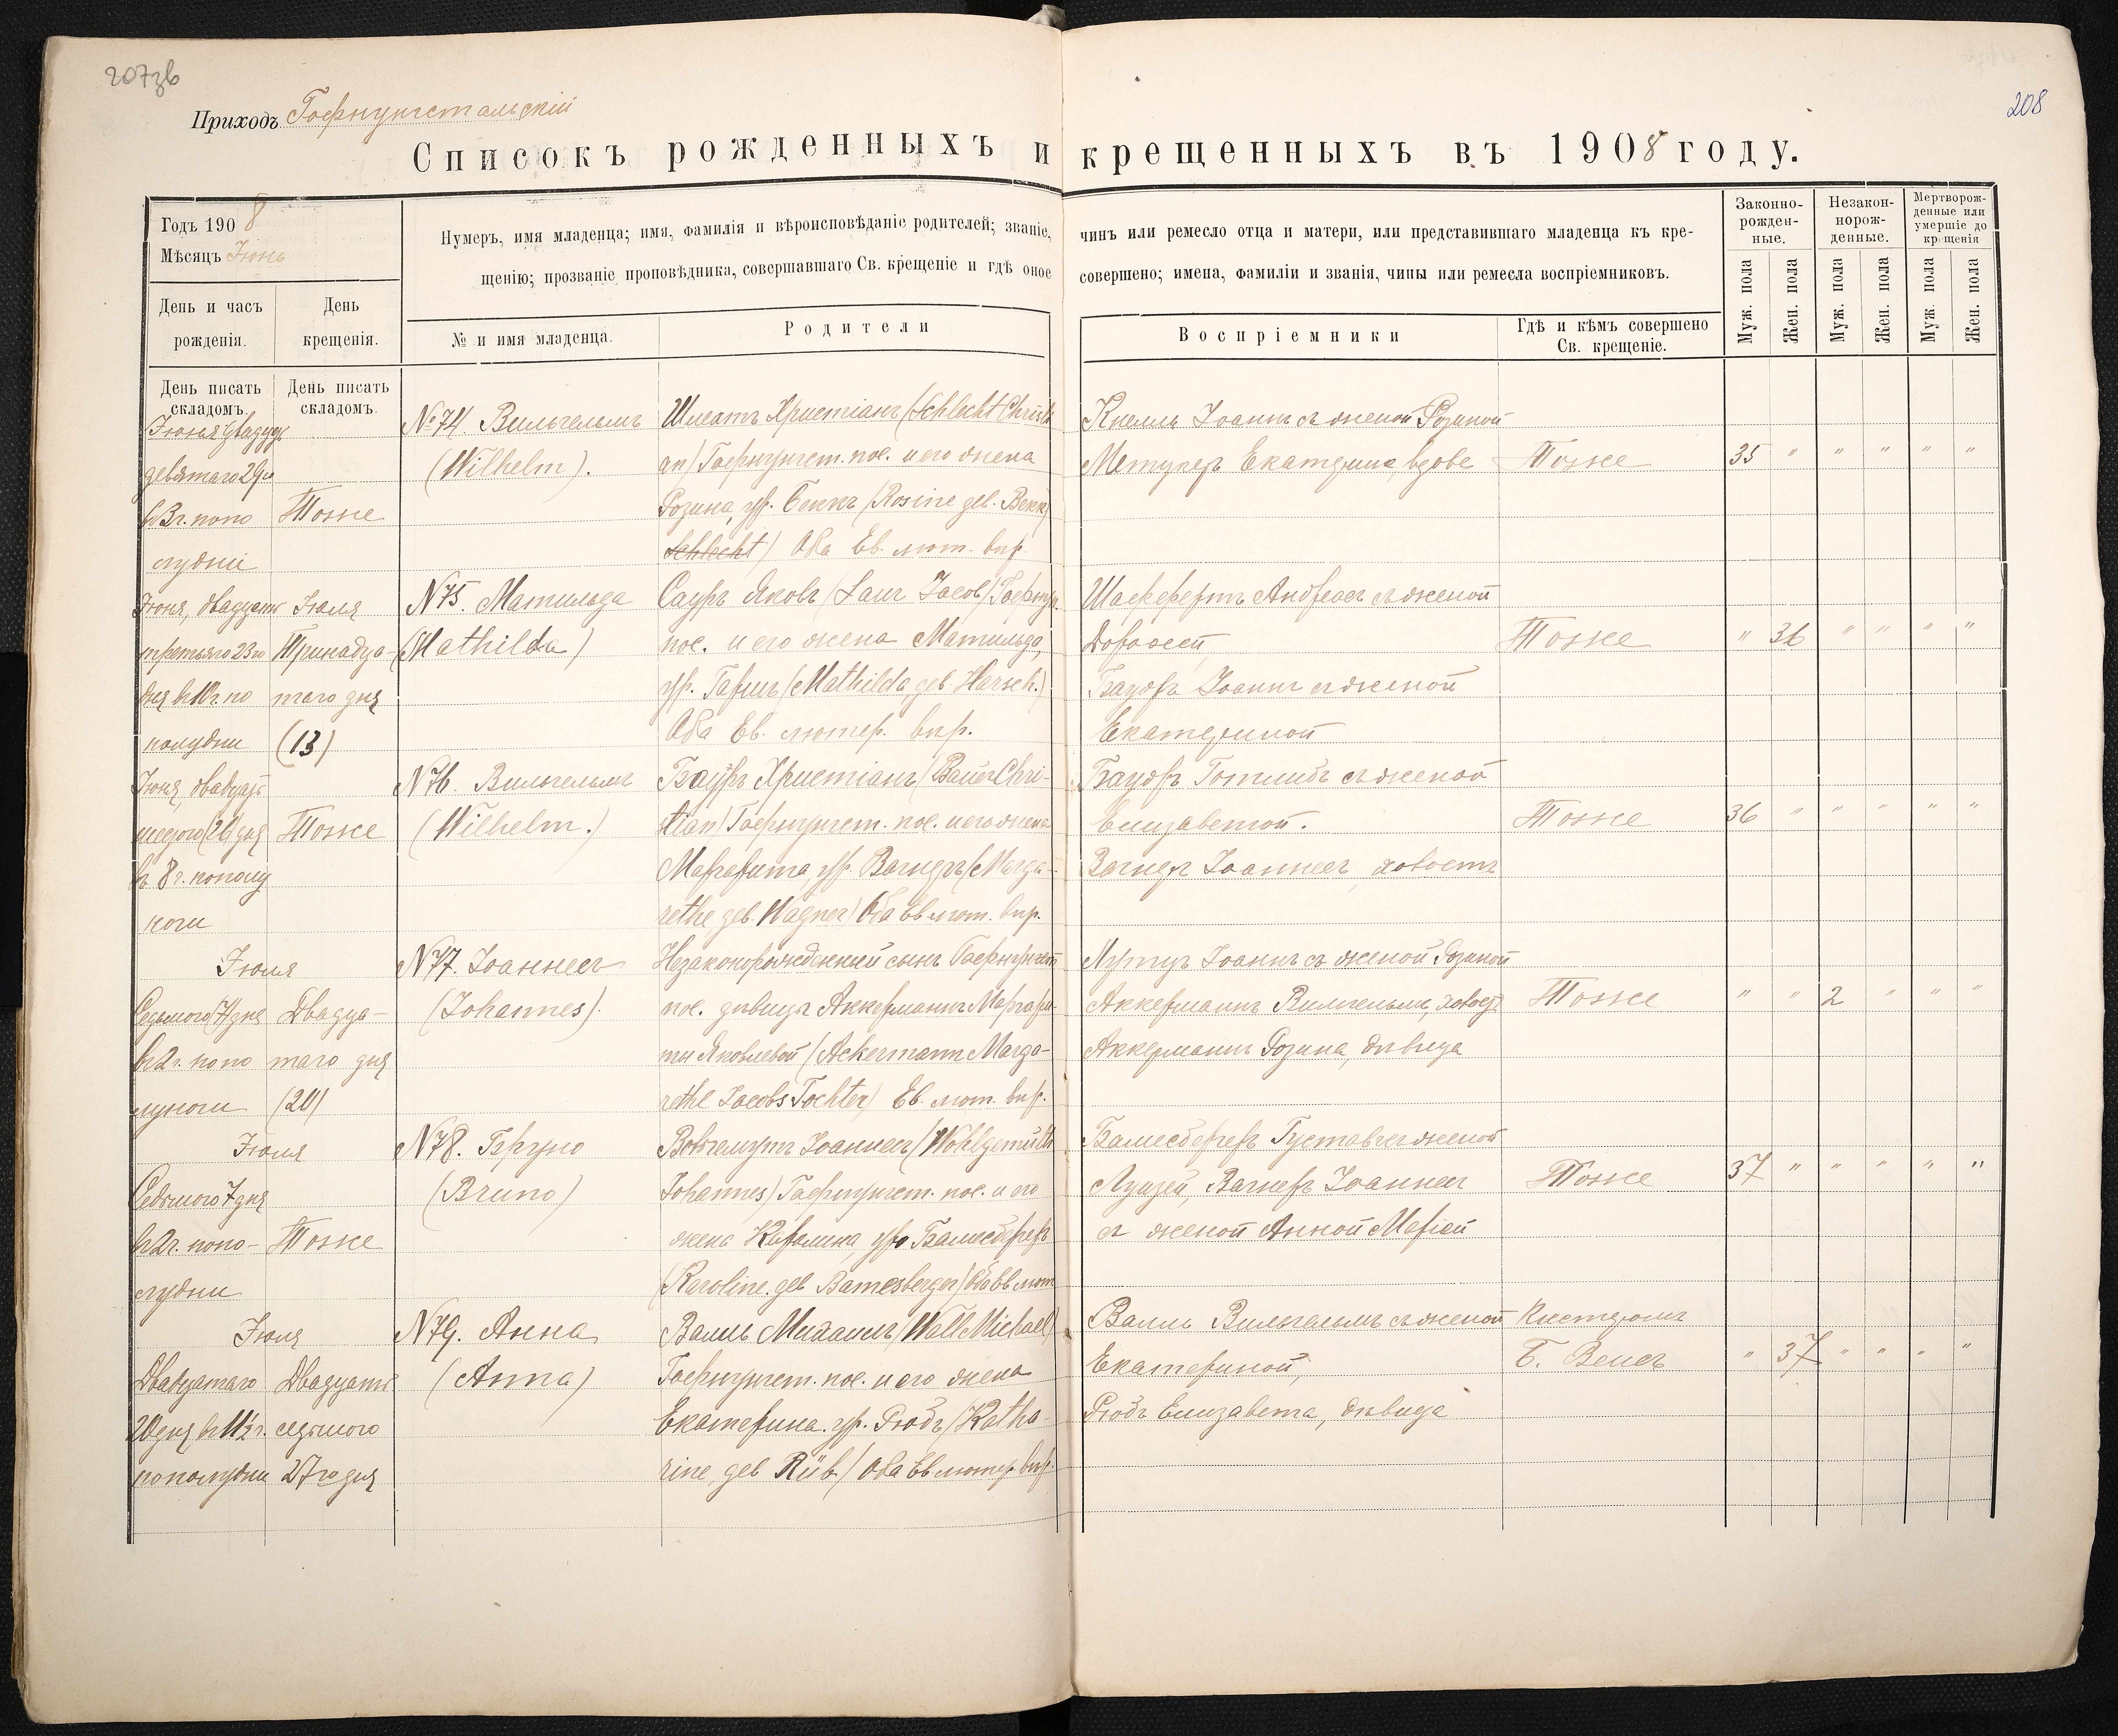 207зв
208
Приходъ Гофнунгстальскій
Списокъ рожденныхъ и крещенныхъ въ 1908 году.
Годъ 1908
Мѣсяцъ Іюнь
День и часъ рожденія.
День крещенія.
Нумеръ, имя младенца; имя, фамилія и вѣроисповѣданіе родителей; званіе, чинъ или ремесло отца и матери, или представившаго младенца къ кре-
щенію; прозваніе проповѣдника, совершавшаго Св. крещеніе и гдѣ оное совершено; имена, фамиліи и званія, чины или ремесла воспріемниковъ.
№ и имя младенца.
Родители
Воспріемники
Гдѣ и кѣмъ совершено Св. крещеніе.
Законно-рожден-ные.
Незакон-норож-денные.
Мертворож-денные или умершіе до крещенія
Муж. пола
Жен. пола
Муж. пола
Жен. пола
Муж. пола
Жен. пола
День писать складомъ.
День писать складомъ.
девятаго 29го
в 3 г. попо
лудни
Тоже
№ 74. Вильгельмъ
(Wilhelm).
Шлехтъ Христіанъ (Schlecht Christi
an) Гофнунгст. пос. и его жена
Розина, ур. Беккъ (Rosine geb. Bekk)
Schlecht) Оба Ев. лют. вир.
Кнелль Іоаннъ съ женой Розиной
Метцгеръ Екатерина, вдове
Тоже
35 " " " " "
Іюня, двадцать
третьяго 23го
дня в 10 г. по
полудни
Іюля
Тринадца-
таго дня
(13)
N 75. Матильда
(Mathilda)
Сауръ Яковъ (Saur Jacob) Гофнун.
пос. и его жена Матильда,
ур. Гаршъ (Mathilda, geb Harsch.)
Оба Ев. лютер. вир.
Шафферть Андреасъ съ женой
Доротеей
Бауэръ Іоаннъ съ женой
Екатериной
Тоже
" 36 " " " "
Іюня двадцать
шестого (26) дня
въ 8 г. полу
ночи
Тоже
N 76. Вильгельмъ
(Wilhelm.)
Бауэръ Христіанъ (Bauer Chri-
stian) Гофнунгст. пос. и его жена
Маргарита, ур. Вагнеръ (Marga-
rethe geb. Wagner) Оба Ев лют. вир.
Бауэръ Готлибъ съ женой
Елизаветой.
Вагнеръ Іоаннесъ, холость
Тоже
36 " " " " "
Іюля
Седьмого 7 дня
в 2 г. попо
луночи
Двадца-
таго дня
(20)
N 77. Іоаннесъ
(Johannes).
Незаконорожденный сынъ Гофнунгст
пос. дѣвицы Аккерманнъ Маргари-
ты Яковлевой (Ackermann Marga-
rethe Jacobs Tochter) Ев. лют. вир.
Іоаннъ съ женой Розиной
Аккерманнъ Вильгельмъ, холост
Аккерманнъ Розина, дѣвица
Тоже
" " 2 " " "
Іюля
Седьмого 7 дня
в 2 г. попо-
лудни
Тоже
N 78. Бруно
(Bruno)
Вольгемутъ Іоаннесъ (Wohlgemuth
Johannes) Гофнунгст. пос. и его
жена Каролина, ур. Бамесбергеръ
(Karoline. geb Bamesberger) Оба Ев лют
Бамесбергеръ Густавъ съ женой
Луизей, Вагнеръ Іоаннесъ
съ женой Анной Маріей
Тоже
37 " " " " "
Іюля
Двадцатаго
20 дня в 11½ г.
пополудни
Двадцать
седьмого
27го дня
N 79. Анна
(Anna)
Валль Михаилъ (Wall Michael)
Гофнунгст. пос. и его жена
Екатерина. ур. Рюбъ (Katha-
rine, geb Rüb.) Оба Ев лютер вир.
Валль Вильгельмъ съ женой
Екатериной,
Рюбъ Елизавета, дѣвица
Кистеромъ
Б. Вейсъ
" 37 " " " "